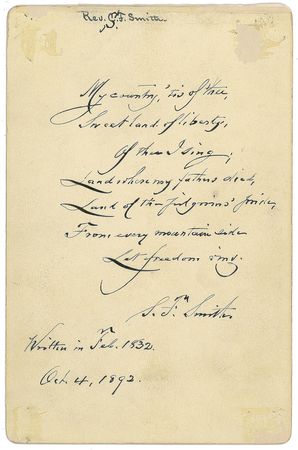 Rev. S. F. Smith.
My country, 'tis of thee,
Sweet land of liberty,
Of thee I sing;
Land where my fathers died,
Land of the pilgrims' pride,
From every mountain side
Let freedom ring.
S. F. Smith
Written in Feb. 1832.
Oct. 4, 1892.